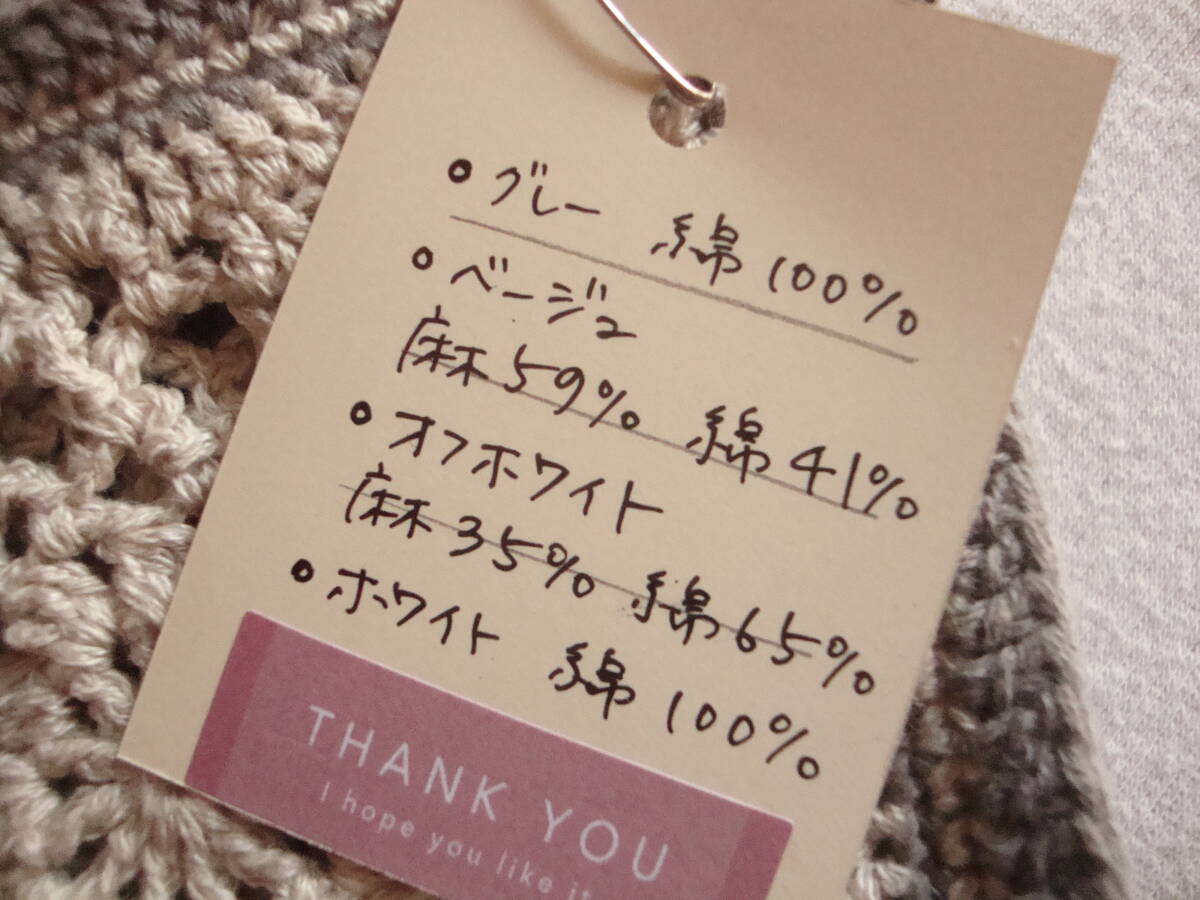 • グレー 綿 100%
• ベージュ
麻 59% 綿 41%
• オフホワイト
麻 35% 綿 65%
• ホワイト 綿 100%
THANK YOU
I hope you like it